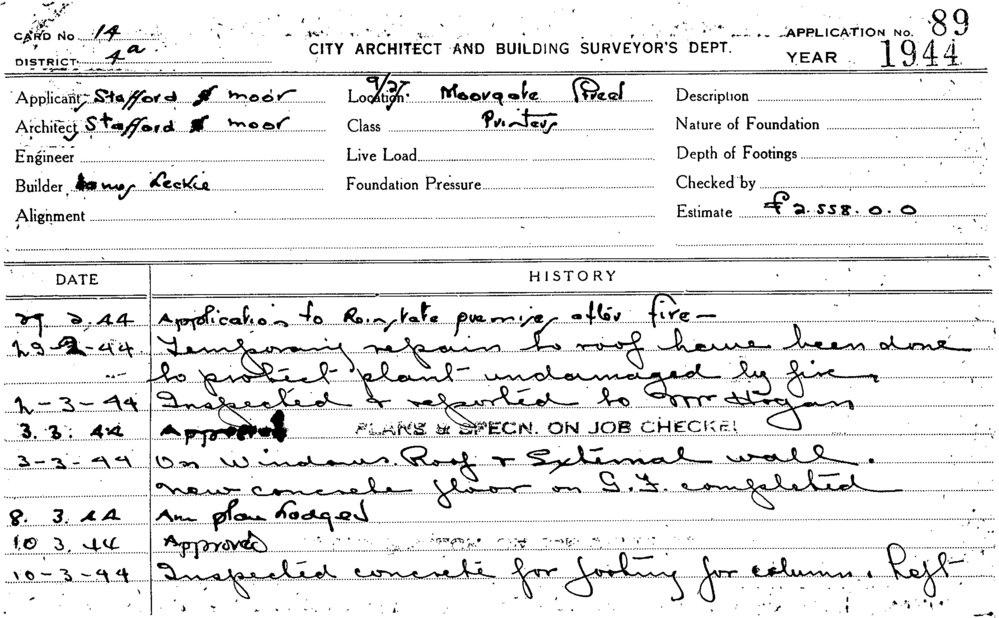 CARD No 14
DISTRICT 4a
CITY ARCHITECT AND BUILDING SURVEYOR'S DEPT.
APPLICATION No. 89
YEAR 1944
Applicant Stafford & moor
Location 9/27. Moorgate Street
Description
Architect Stafford & moor
Class Printers
Nature of Foundation
Engineer
Live Load
Depth of Footings
Builder James Leckie
Foundation Pressure
Checked by
Alignment
Estimate £2.558.0.0
DATE HISTORY
29 2.44 Application to Reinstate premises after fire—
29-2-44 Temporary repairs to roof have been done
to protect plant undamaged by fire.
2-3-44 Inspected & reported to Mr Hogan
3.3.44 Approved PLANS & SPECN. ON JOB CHECKED
3-3-44 On Windows. Roof & External wall.
New concrete floor on G.F. completed
8. 3.44 Am plan Lodged
10 3.44 Approved
10-3-44 Inspected concrete for footing for column. Left